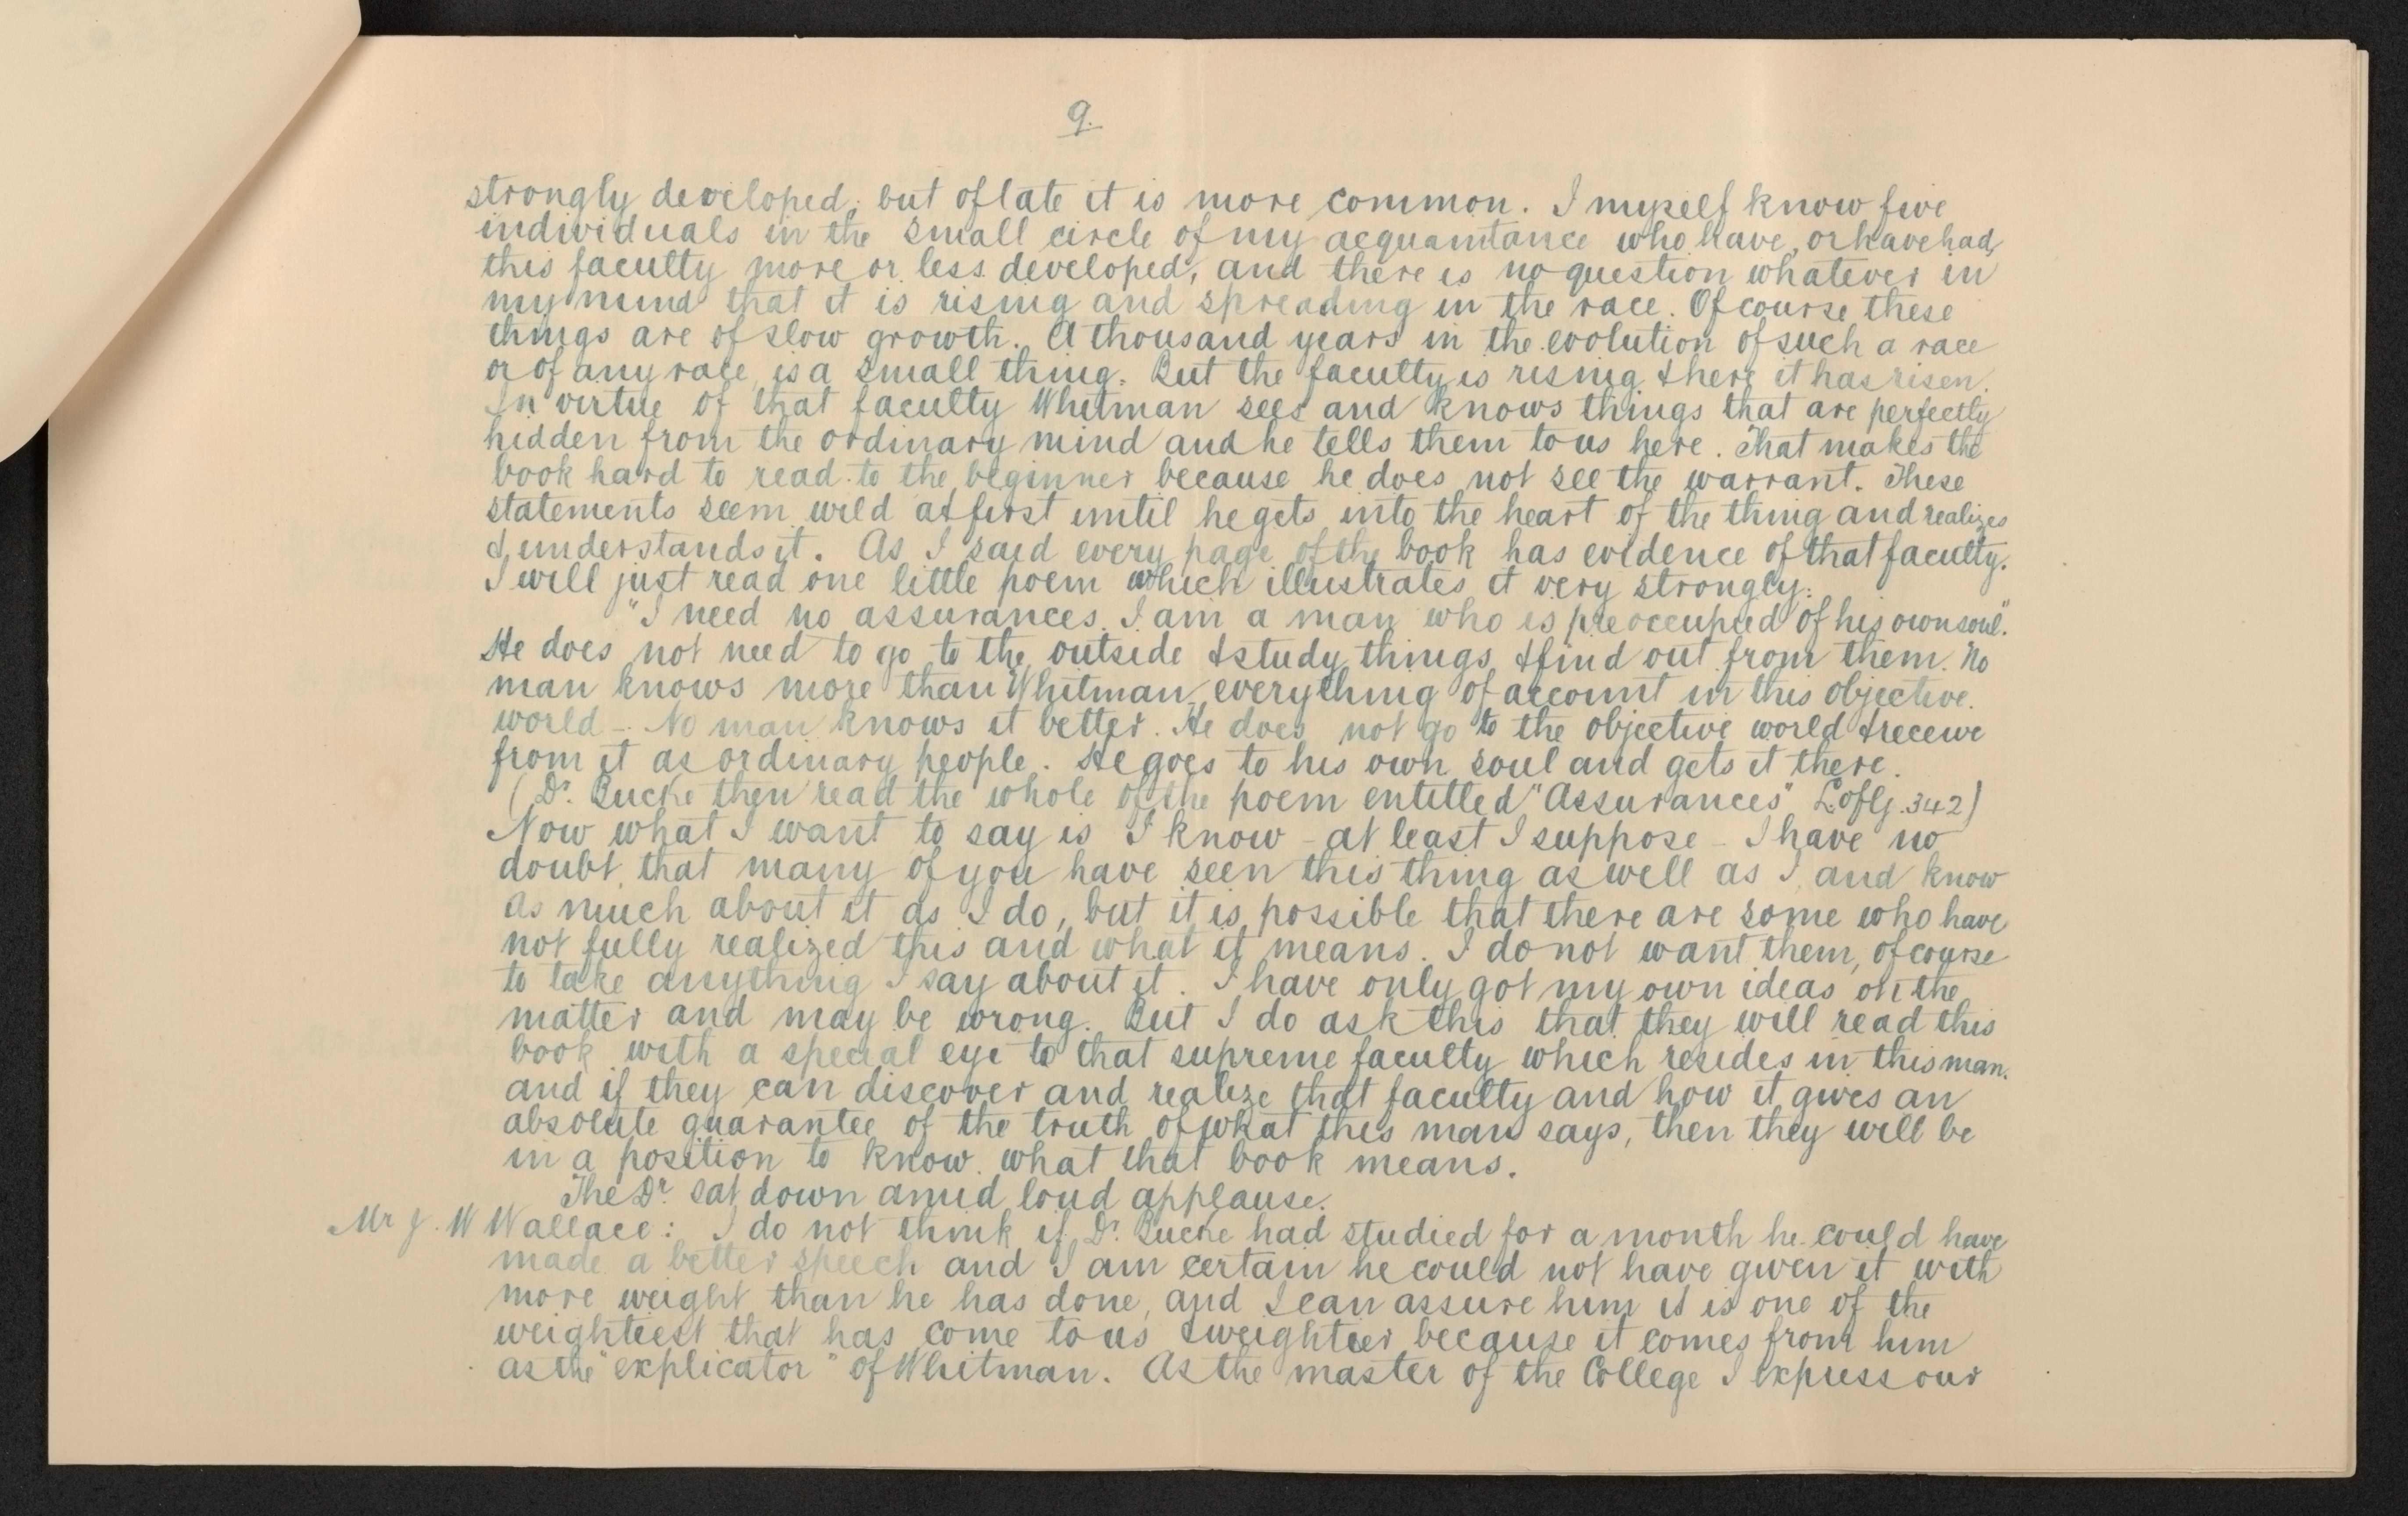 9.
strongly developed; but of late it is more common. I myself know five
individuals in the small circle of my acquaintance who have, or have had,
this faculty more or less developed, and there is no question whatever in
my mind that it is rising and spreading in the race. Of course these
things are of slow growth. A thousand years in the evolution of such a race
or of any race, is a small thing. But the faculty is rising & here it has risen.
In virtue of that faculty Whitman sees and knows things that are perfectly
hidden from the ordinary mind and he tells them to us here. That makes the
book hard to read to the beginner because he does not see the warrant. These
statements seem wild at first until he gets into the heart of the thing and realizes
& understands it. As I said every page of the book has evidence of that faculty.
I will just read one little poem which illustrates it very strongly:
"I need no assurances. I am a man who is preoccupied of his own soul".
He does not need to go to the outside & study things & find out from them. No
man knows more than Whitman, everything of account in this objective
world - No man knows it better. He does not go to the objective world & receive
from it as ordinary people. He goes to his own soul and gets it there.
(Dr. Bucke then read the whole of the poem entitled "Assurances" L. of G. 342)
Now what I want to say is I know - at least I suppose - I have no
doubt that many of you have seen this thing as well as I, and know
as much about it as I do, but it is possible that there are some who have
not fully realized this and what it means. I do not want them, of course
to take anything I say about it. I have only got my own ideas on the
matter and may be wrong. But I do ask this that they will read this
book with a special eye to that supreme faculty which resides in this man.
and if they can discover and realize that faculty and how it gives an
absolute guarantee of the truth of what this man says, then they will be
in a position to know what that book means.
The Dr. sat down amid loud applause.
Mr J. W Wallace: I do not think if Dr. Bucke had studied for a month he could have
made a better speech and I am certain he could not have given it with
more weight than he has done, and I can assure him it is one of the
weightiest that has come to us & weightier because it comes from him
as the "explicator" of Whitman. As the master of the College I express our